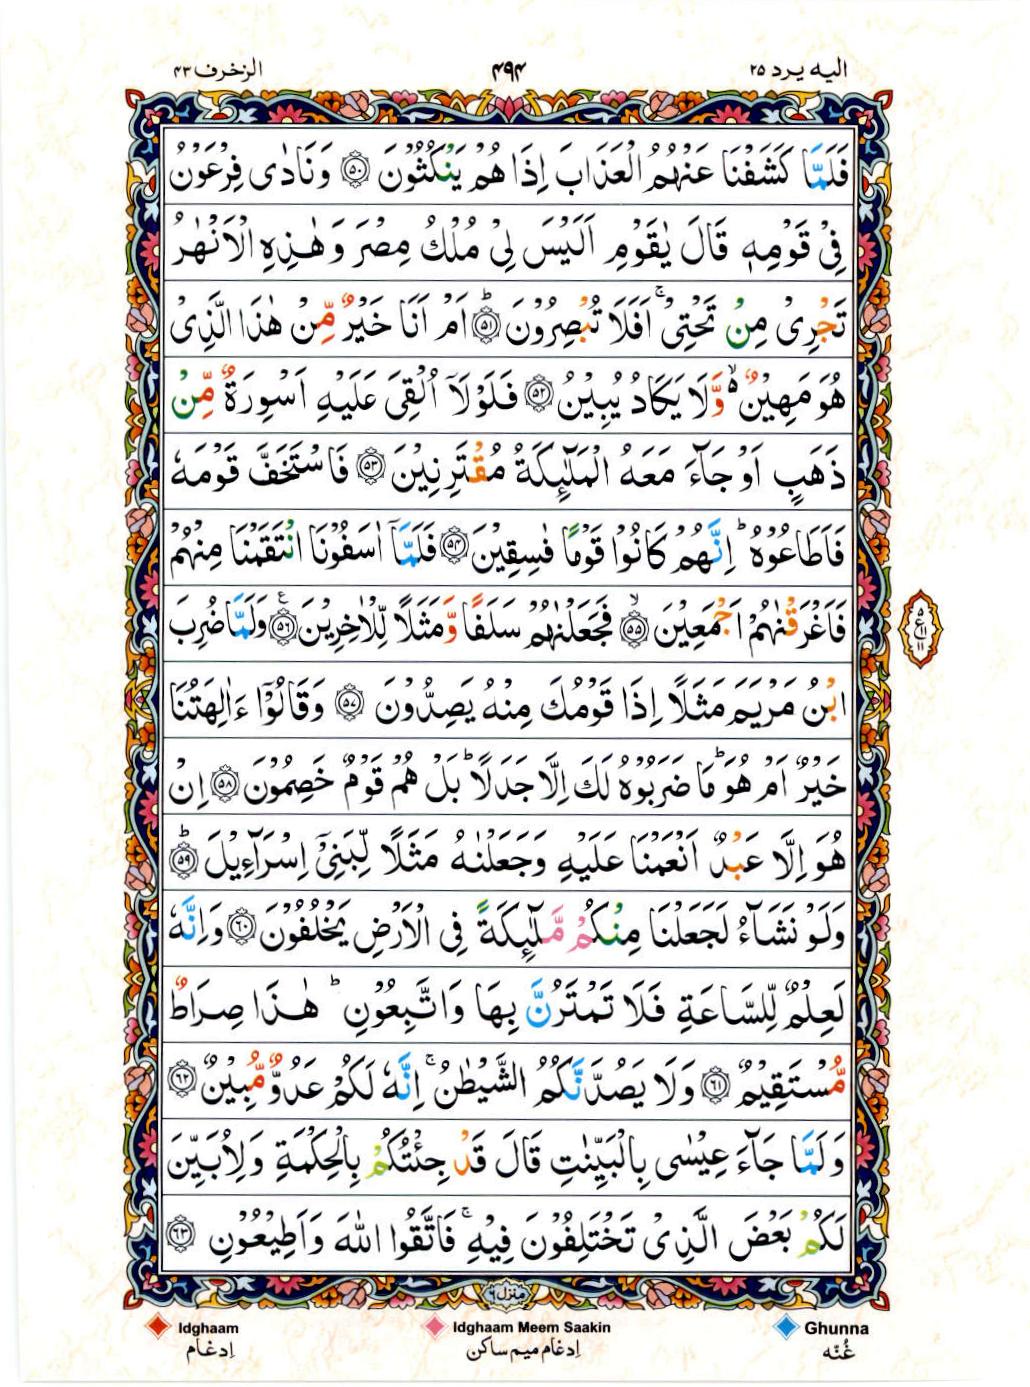 الیه یرد ۲۵
۴۹۴
الزخرف ۴۳
فَلَمَّا كَشَفْنَا عَنْهُمُ الْعَذَابَ اِذَا هُمْ يَنْكُثُوْنَ ﴿۵۰﴾ وَنَادٰى فِرْعَوْنُ
فِيْ قَوْمِهٖ قَالَ يٰقَوْمِ اَلَيْسَ لِيْ مُلْكُ مِصْرَ وَهٰذِهِ الْاَنْهٰرُ
تَجْرِيْ مِنْ تَحْتِيْ ۚ اَفَلَا تُبْصِرُوْنَ ﴿۵۱﴾ؕ اَمْ اَنَا خَيْرٌ مِّنْ هٰذَا الَّذِيْ
هُوَ مَهِيْنٌ ۙ۬ وَّلَا يَكَادُ يُبِيْنُ ﴿۵۲﴾ فَلَوْلَاۤ اُلْقِيَ عَلَيْهِ اَسْوِرَةٌ مِّنْ
ذَهَبٍ اَوْ جَآءَ مَعَهُ الْمَلٰٓئِكَةُ مُقْتَرِنِيْنَ ﴿۵۳﴾ فَاسْتَخَفَّ قَوْمَهٗ
فَاَطَاعُوْهُ ؕ اِنَّهُمْ كَانُوْا قَوْمًا فٰسِقِيْنَ ﴿۵۴﴾ فَلَمَّاۤ اٰسَفُوْنَا انْتَقَمْنَا مِنْهُمْ
فَاَغْرَقْنٰهُمْ اَجْمَعِيْنَ ﴿۵۵﴾ۙ فَجَعَلْنٰهُمْ سَلَفًا وَّمَثَلًا لِّلْاٰخِرِيْنَ ﴿۵۶﴾ع وَلَمَّا ضُرِبَ
ابْنُ مَرْيَمَ مَثَلًا اِذَا قَوْمُكَ مِنْهُ يَصِدُّوْنَ ﴿۵۷﴾ وَقَالُوْۤا ءَاٰلِهَتُنَا
خَيْرٌ اَمْ هُوَ ؕ مَا ضَرَبُوْهُ لَكَ اِلَّا جَدَلًا ؕ بَلْ هُمْ قَوْمٌ خَصِمُوْنَ ﴿۵۸﴾ اِنْ
هُوَ اِلَّا عَبْدٌ اَنْعَمْنَا عَلَيْهِ وَجَعَلْنٰهُ مَثَلًا لِّبَنِيْۤ اِسْرَآءِيْلَ ﴿۵۹﴾ؕ
وَلَوْ نَشَآءُ لَجَعَلْنَا مِنْكُمْ مَّلٰٓئِكَةً فِي الْاَرْضِ يَخْلُفُوْنَ ﴿۶۰﴾ وَاِنَّهٗ
لَعِلْمٌ لِّلسَّاعَةِ فَلَا تَمْتَرُنَّ بِهَا وَاتَّبِعُوْنِ ؕ هٰذَا صِرَاطٌ
مُّسْتَقِيْمٌ ﴿۶۱﴾ وَلَا يَصُدَّنَّكُمُ الشَّيْطٰنُ ۚ اِنَّهٗ لَكُمْ عَدُوٌّ مُّبِيْنٌ ﴿۶۲﴾
وَلَمَّا جَآءَ عِيْسٰى بِالْبَيِّنٰتِ قَالَ قَدْ جِئْتُكُمْ بِالْحِكْمَةِ وَلِاُبَيِّنَ
لَكُمْ بَعْضَ الَّذِيْ تَخْتَلِفُوْنَ فِيْهِ ۚ فَاتَّقُوا اللّٰهَ وَاَطِيْعُوْنِ ﴿۶۳﴾
۵
ع ۱۱
۱۱
منزل ۶
Ghunna
غُنّه
Idghaam Meem Saakin
اِدغام میم ساکن
Idghaam
اِدغام